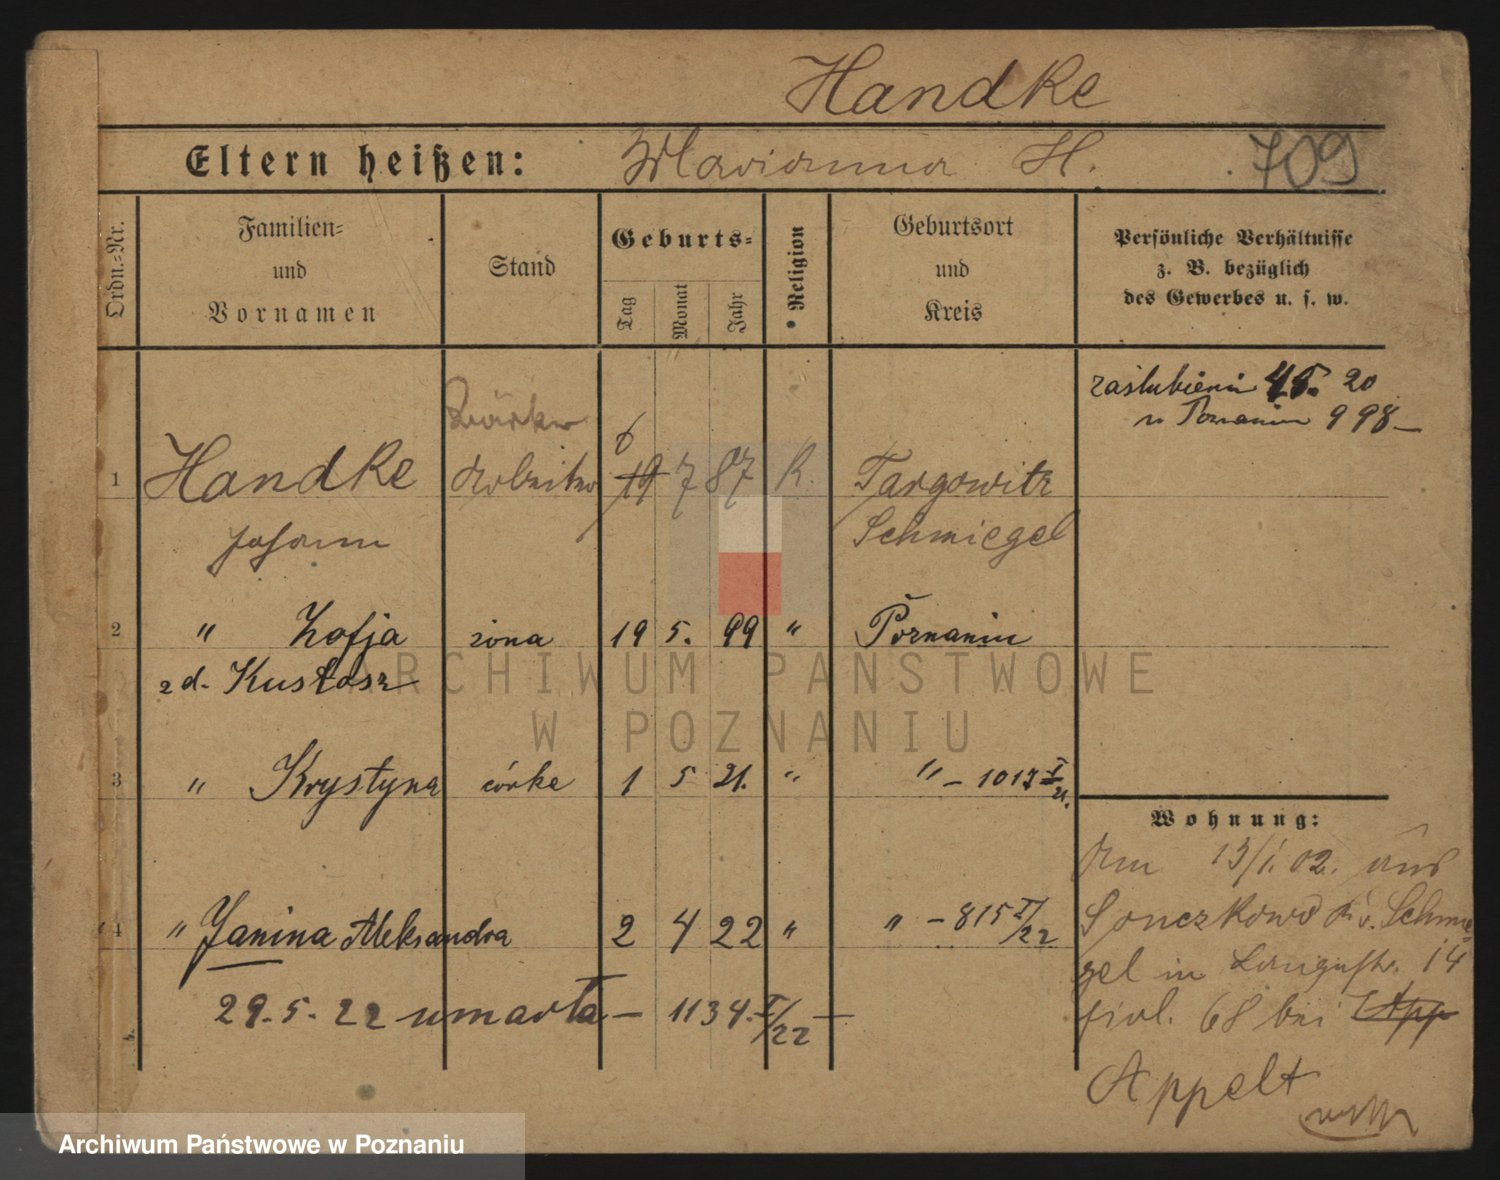 Handke
Eltern heißen: Marianna H. 709
Ordn.-Nr.
Familien-
und
Vornamen
Stand
Geburts-
Tag
Monat
Jahr
Religion
Geburtsort
und
Kreis
Persönliche Verhältnisse
z. B. bezüglich
des Gewerbes u. s. w.
zaślubieni 4.5. 20
w Poznaniu 998 —
1 Handke 6 19 7 87 K. Targowitz
Johann Schmiegel
2 " Zofja żona 19 5. 99 " Poznaniu
z d. Kustosz
3 " Krystyna córka 1 5 21. " " — 1017 I/21.
Wohnung:
Am 13/1. 02. aus
4 " Janina Aleksandra 2 4 22 " " — 815 I/22
Sonczkowo Kr. Schmie-
gel in Langestr. 14
29. 5. 22 umarła — 1134. I/22 —
fivl. 68 bei App
5.
Appelt
ARCHIWUM PAŃSTWOWE
W POZNANIU
Archiwum Państwowe w Poznaniu